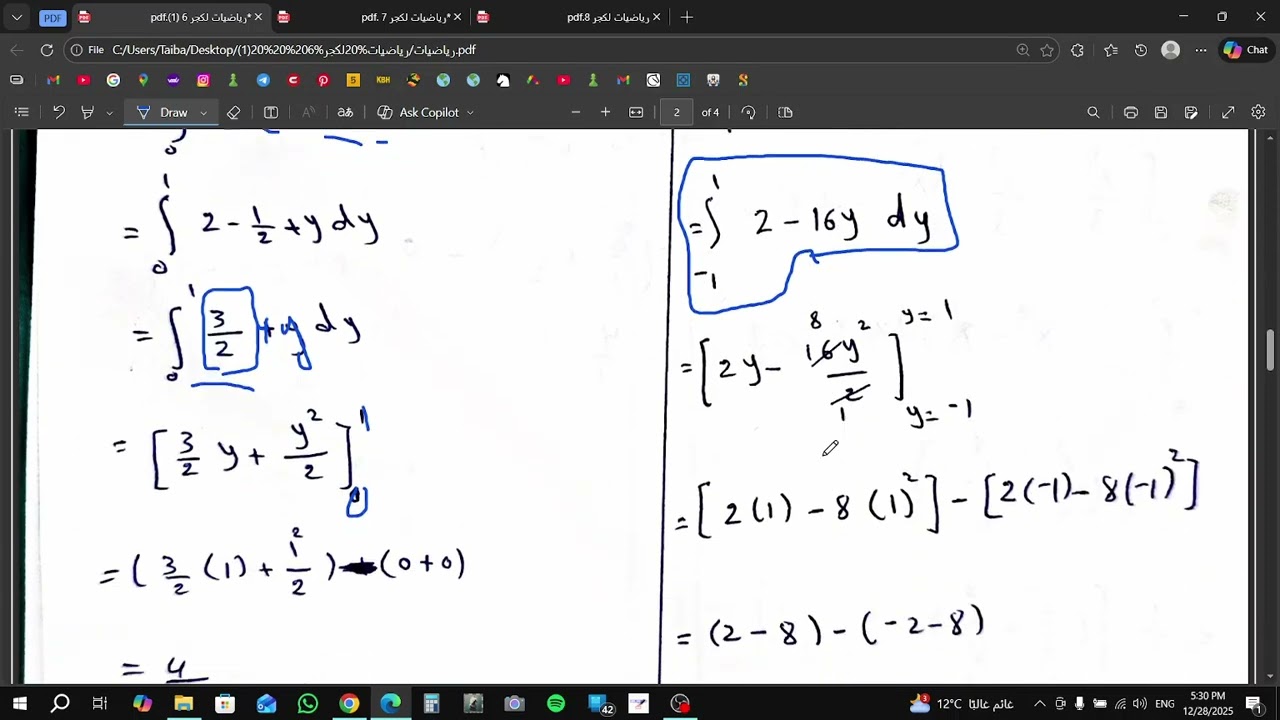 PDF
رياضيات لكجر 6 (1).pdf*
رياضيات لكجر 7 .pdf*
رياضيات لكجر 8.pdf
File
C:/Users/Taiba/Desktop/رياضيات/رياضيات%20لكجر%206%20%20(1).pdf
Chat
Draw
Ask Copilot
2 of 4
0
= ∫₀¹ 2 - 1/2 + y dy
= ∫₀¹ 3/2 + y dy
= [3/2 y + y²/2]₀¹
= (3/2 (1) + 1²/2) - (0+0)
= 4
= ∫₋₁¹ 2 - 16y dy
= [2y - 16y²/2] y=1 y=-1
8
1
= [2(1) - 8(1)²] - [2(-1) - 8(-1)²]
= (2 - 8) - (-2 - 8)
42
3
12°C غائم غالبا
ENG
5:30 PM
12/28/2025